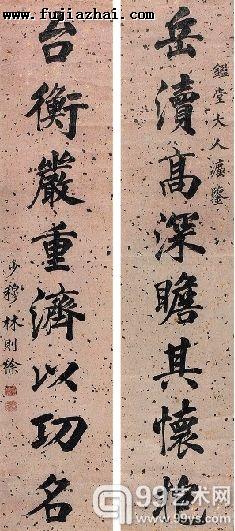 www.fujiazhai.com
鑑堂大人瀆鑒
岳瀆高深瞻其懷抱
台衡嚴重濟以功名
少穆林則徐
99艺术网
www.99ys.com